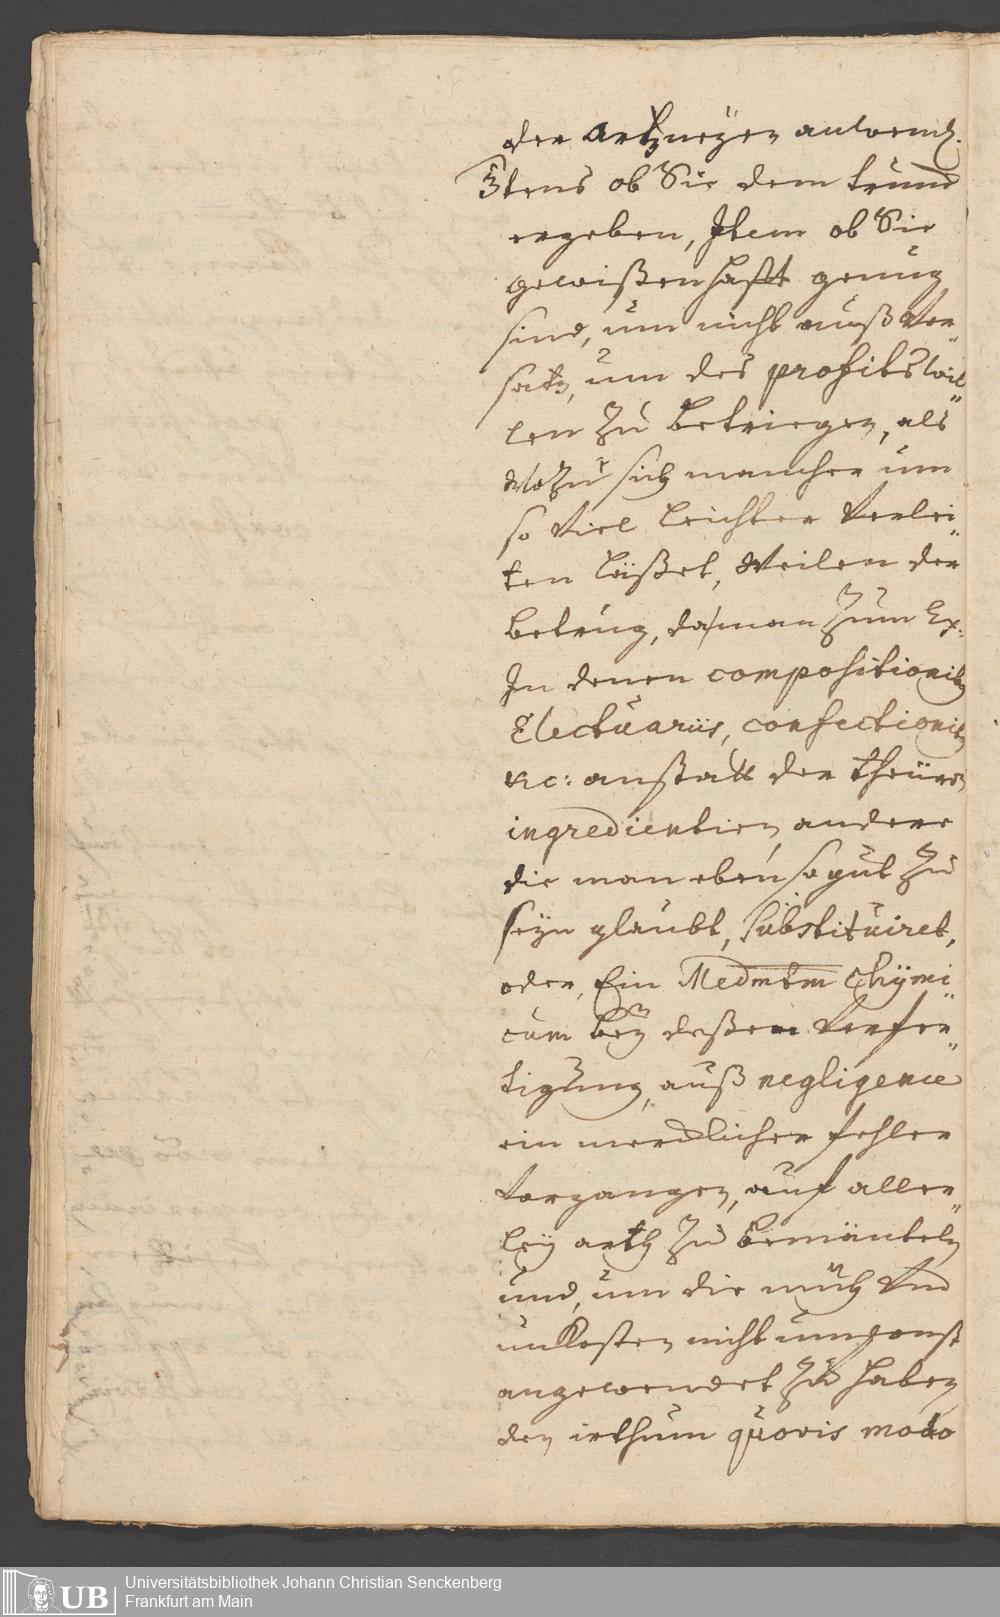 der Artzneÿen anwend.
3tens ob Sie dem trunck
ergeben, Item ob Sie
gewißenhafft genug
sind, um nicht auß Vor„
satz, um des profits wil„
len zu betriegen, als
Wozu sich mancher um
so Viel leichter Verlei„
ten läßet, Weilen der
betrug, da man zum Ex:
In denen compositionib
Electuariis, confectionib
&c: anstatt der theüren
ingredientien andere
die man eben so gut zu
seÿn glaubt, substituiret,
oder, Ein Medmtm chÿmi„
cum beÿ deßen Verfer„
tigung, auß negligence
ein mercklicher fehler
Vorgangen, auf aller„
leÿ arth zu bemänteln
und, um die müh Und
unkosten nicht umsonst
angewendet zu haben
den irthum quovis modo
UB
Universitätsbibliothek Johann Christian Senckenberg
Frankfurt am Main